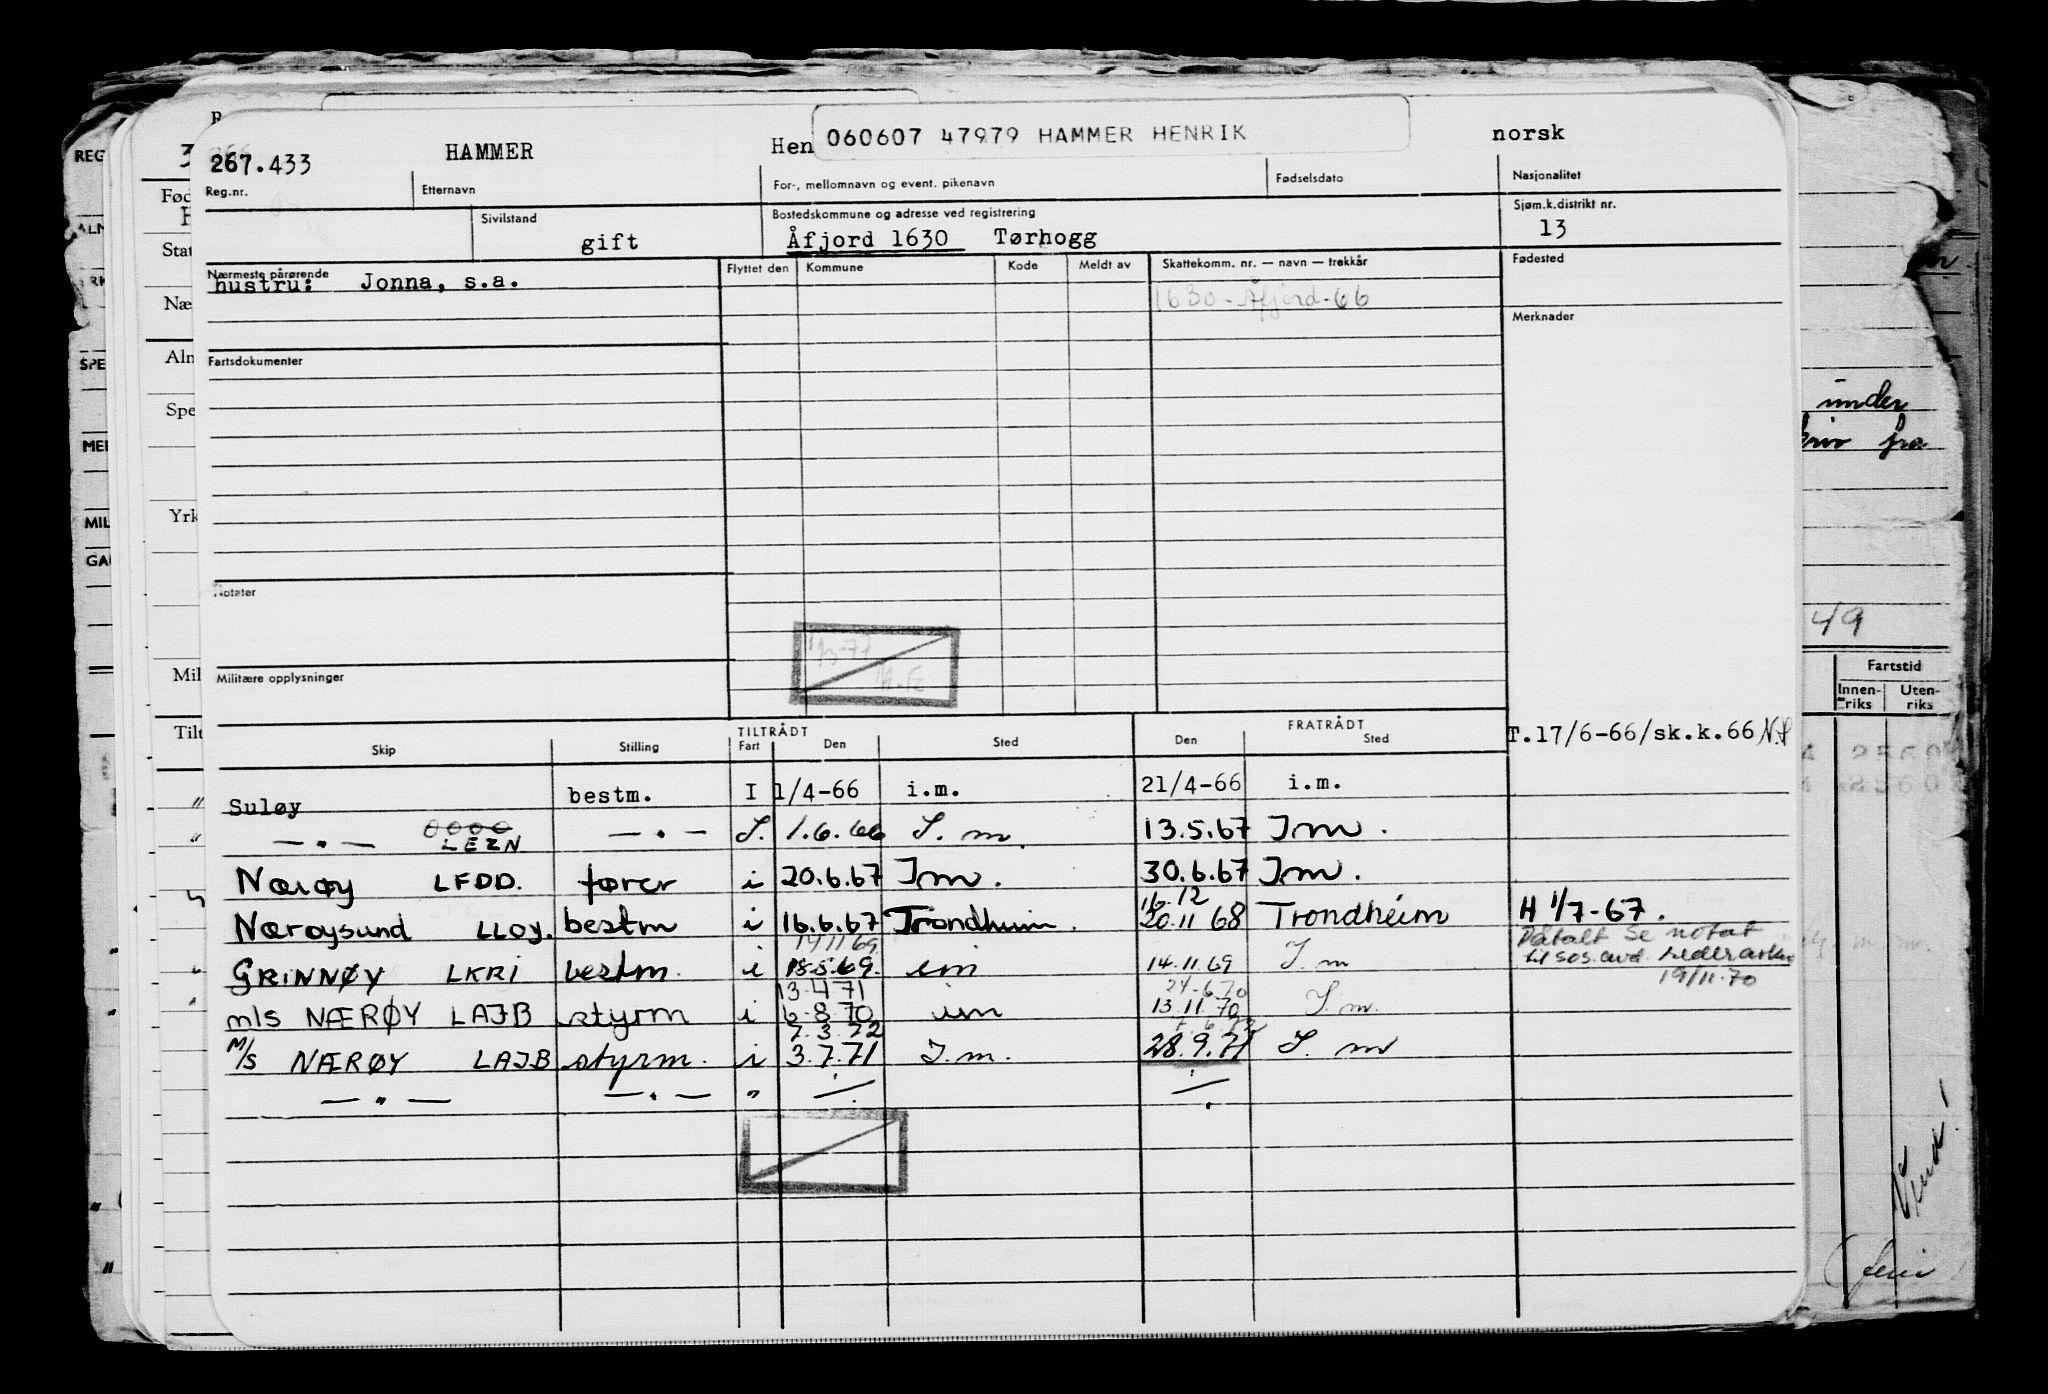 267.433 HAMMER Hen 060607 47979 HAMMER HENRIK norsk
Reg.nr. Etternavn For-, mellomnavn og event. pikenavn Fødselsdato Nasjonalitet
Sivilstand Bostedskommune og adresse ved registrering Sjøm.k.distrikt nr.
gift Åfjord 1630 Tørhogg 13
Nærmeste pårørende Flyttet den Kommune Kode Meldt av Skattekomm. nr. — navn — trekkår Fødested
hustru: Jonna, s.a.
1630-Åfjord-66
Merknader
Fartsdokumenter
Notater
Militære opplysninger
TILTRÅDT FRATRÅDT
Skip Stilling Fart Den Sted Den Sted
T.17/6-66/sk.k.66
Suløy bestm. I 1/4-66 i.m. 21/4-66 i.m.
— " — LEZN — " — I. 1.6.66 I.m. 13.5.67 Im.
Nærøy LFDD. fører i 20.6.67 Im. 30.6.67 Im.
16.12
Nærøysund LLOY. bestm i 16.6.67 Trondheim. 20.11 68 Trondheim H 1/7-67.
14 11 69
GRINNØY LKRI bestm. i 18.5.69. im 14.11 69 I.m
Påtalt Se notat
til sos.avd.
19/11.70
13.4.71 24-6.70
m/s NÆRØY LAJB styrm i 6-8 70 im 13.11 70 I.m.
7.3.72
M/S NÆRØY LAJB styrm. i 3.7.71 I.m. 28.9.71 I. m
— " — — " — " ./. ./.
REG
ALM
SPE
MIL
Fød
Stat
Næ
Aln
Spe
Yrk
Mil
Tilt
under
fra
49
Fartstid
Innenriks Utenriks